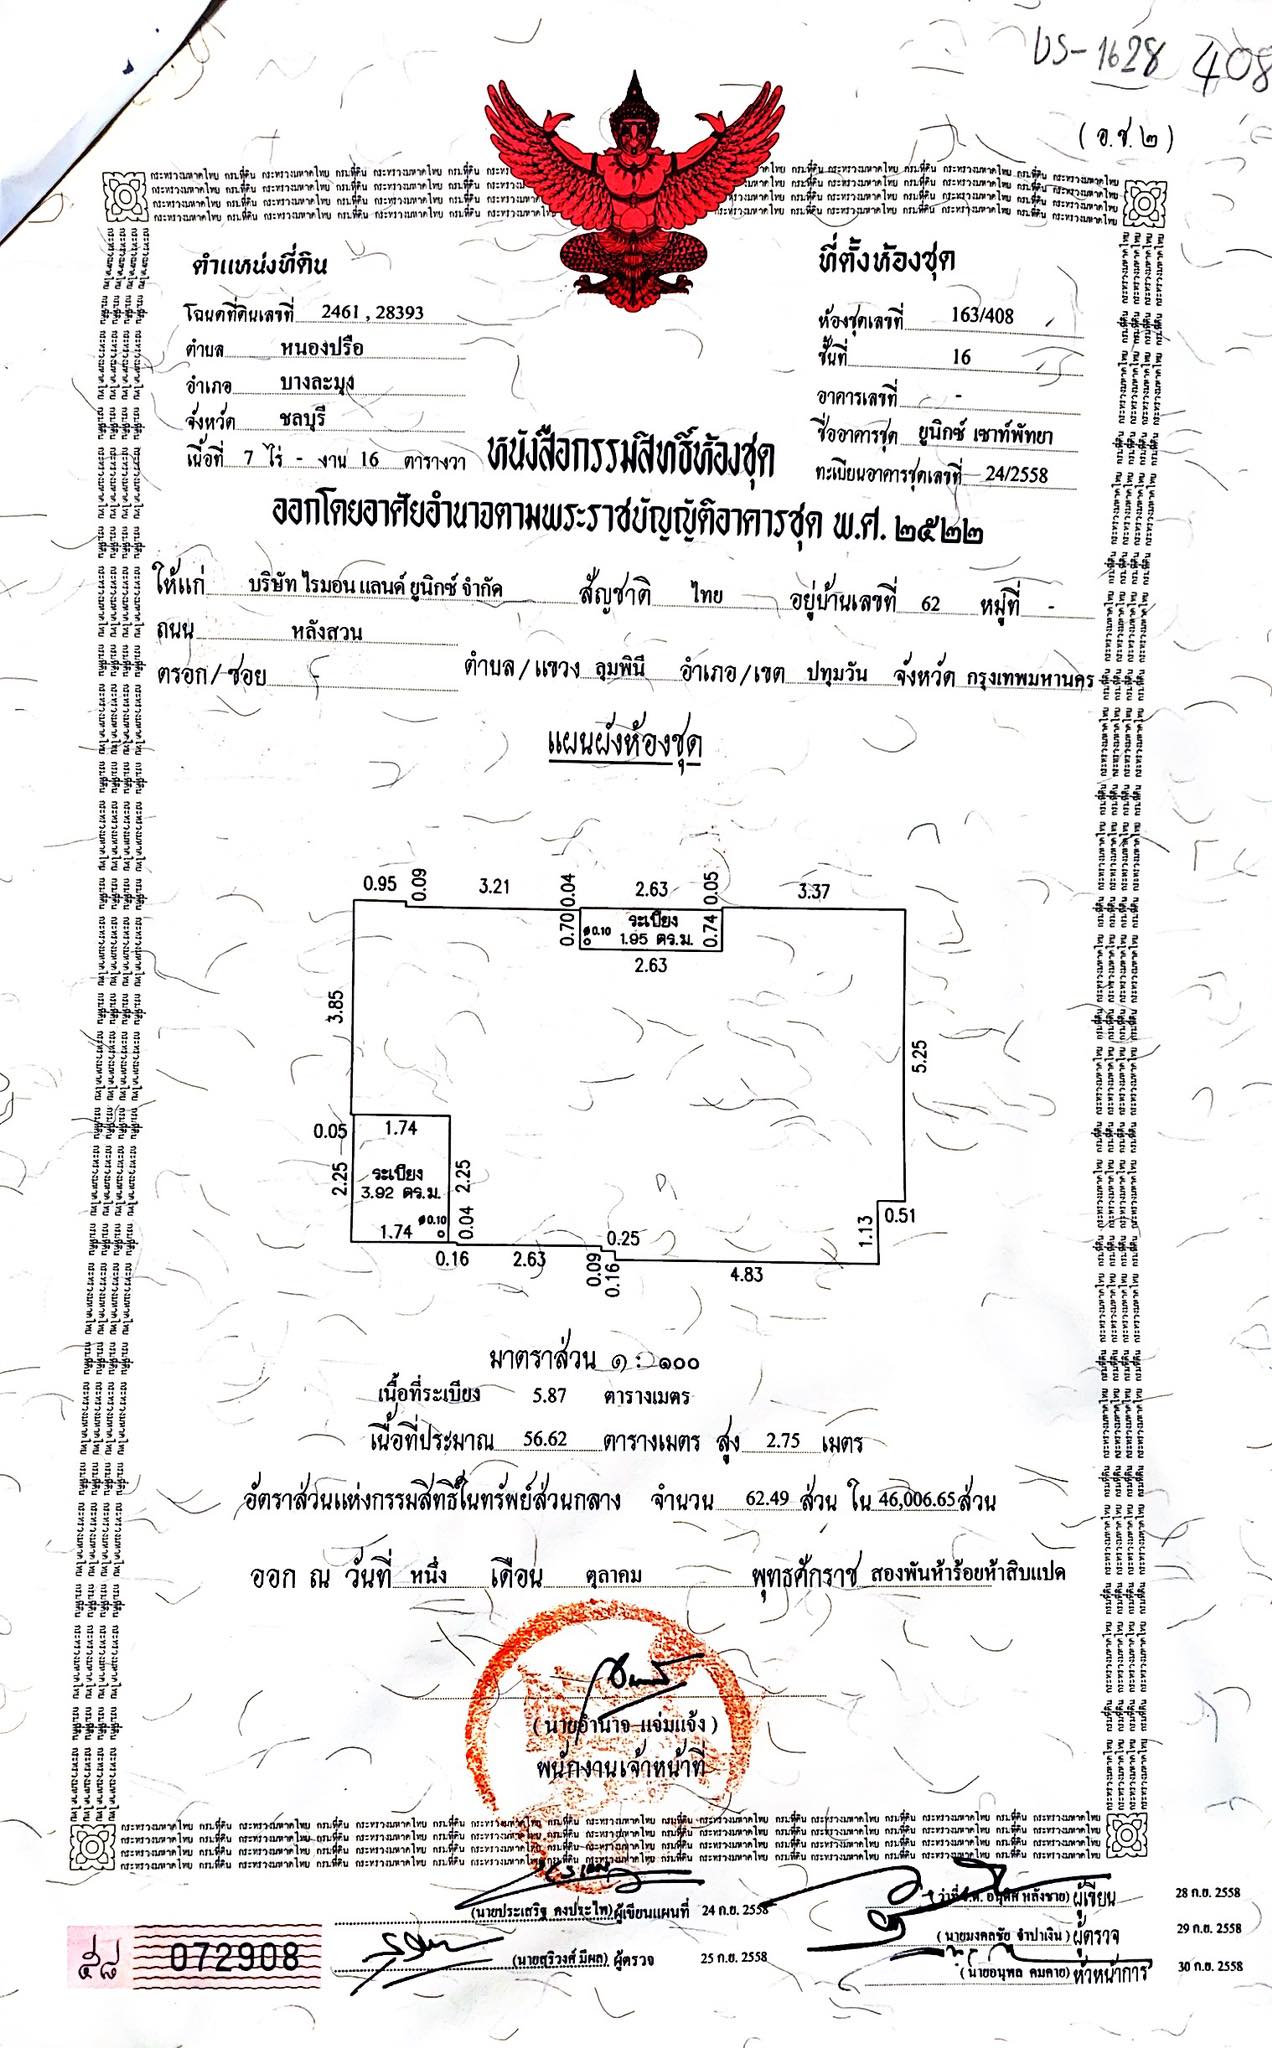 บร-1628 408
(อ.ช.๒)
ตำแหน่งที่ดิน
โฉนดที่ดินเลขที่ 2461 , 28393
ตำบล หนองปรือ
อำเภอ บางละมุง
จังหวัด ชลบุรี
เนื้อที่ 7 ไร่ - งาน 16 ตารางวา
ที่ตั้งห้องชุด
ห้องชุดเลขที่ 163/408
ชั้นที่ 16
อาคารเลขที่ -
ชื่ออาคารชุด ยูนิกซ์ เซาท์พัทยา
ทะเบียนอาคารชุดเลขที่ 24/2558
หนังสือกรรมสิทธิ์ห้องชุด
ออกโดยอาศัยอำนาจตามพระราชบัญญัติอาคารชุด พ.ศ. ๒๕๒๒
ให้แก่ บริษัท ไรมอน แลนด์ ยูนิกซ์ จำกัด สัญชาติ ไทย อยู่บ้านเลขที่ 62 หมู่ที่ -
ถนน หลังสวน
ตรอก/ซอย - ตำบล/แขวง ลุมพินี อำเภอ/เขต ปทุมวัน จังหวัด กรุงเทพมหานคร
แผนผังห้องชุด
0.95 0.09 3.21 0.04 2.63 0.05 3.37
0.70 ø0.10 ระเบียง 0.74
1.95 ตร.ม.
2.63
3.85
5.25
0.05 1.74
2.25 ระเบียง 2.25
3.92 ตร.ม.
1.74 ø0.10 0.04
0.51
1.13
0.16 2.63 0.25
0.09 0.16 4.83
มาตราส่วน ๑ : ๑๐๐
เนื้อที่ระเบียง 5.87 ตารางเมตร
เนื้อที่ประมาณ 56.62 ตารางเมตร สูง 2.75 เมตร
อัตราส่วนแห่งกรรมสิทธิ์ในทรัพย์ส่วนกลาง จำนวน 62.49 ส่วน ใน 46,006.65 ส่วน
ออก ณ วันที่ หนึ่ง เดือน ตุลาคม พุทธศักราช สองพันห้าร้อยห้าสิบแปด
(นายอำนาจ แจ่มแจ้ง)
พนักงานเจ้าหน้าที่
กระทรวงมหาดไทย กรมที่ดิน
(นายประเสริฐ คงประไพ) ผู้เขียนแผนที่ 24 ก.ย. 2558
(นายสุริวงศ์ มีผล) ผู้ตรวจ 25 ก.ย. 2558
ผู้เขียน 28 ก.ย. 2558
(นายมงคลชัย จำปาเงิน) ผู้ตรวจ 29 ก.ย. 2558
(นายอนุพล คมคาย) หัวหน้าการ 30 ก.ย. 2558
๕๘ 072908